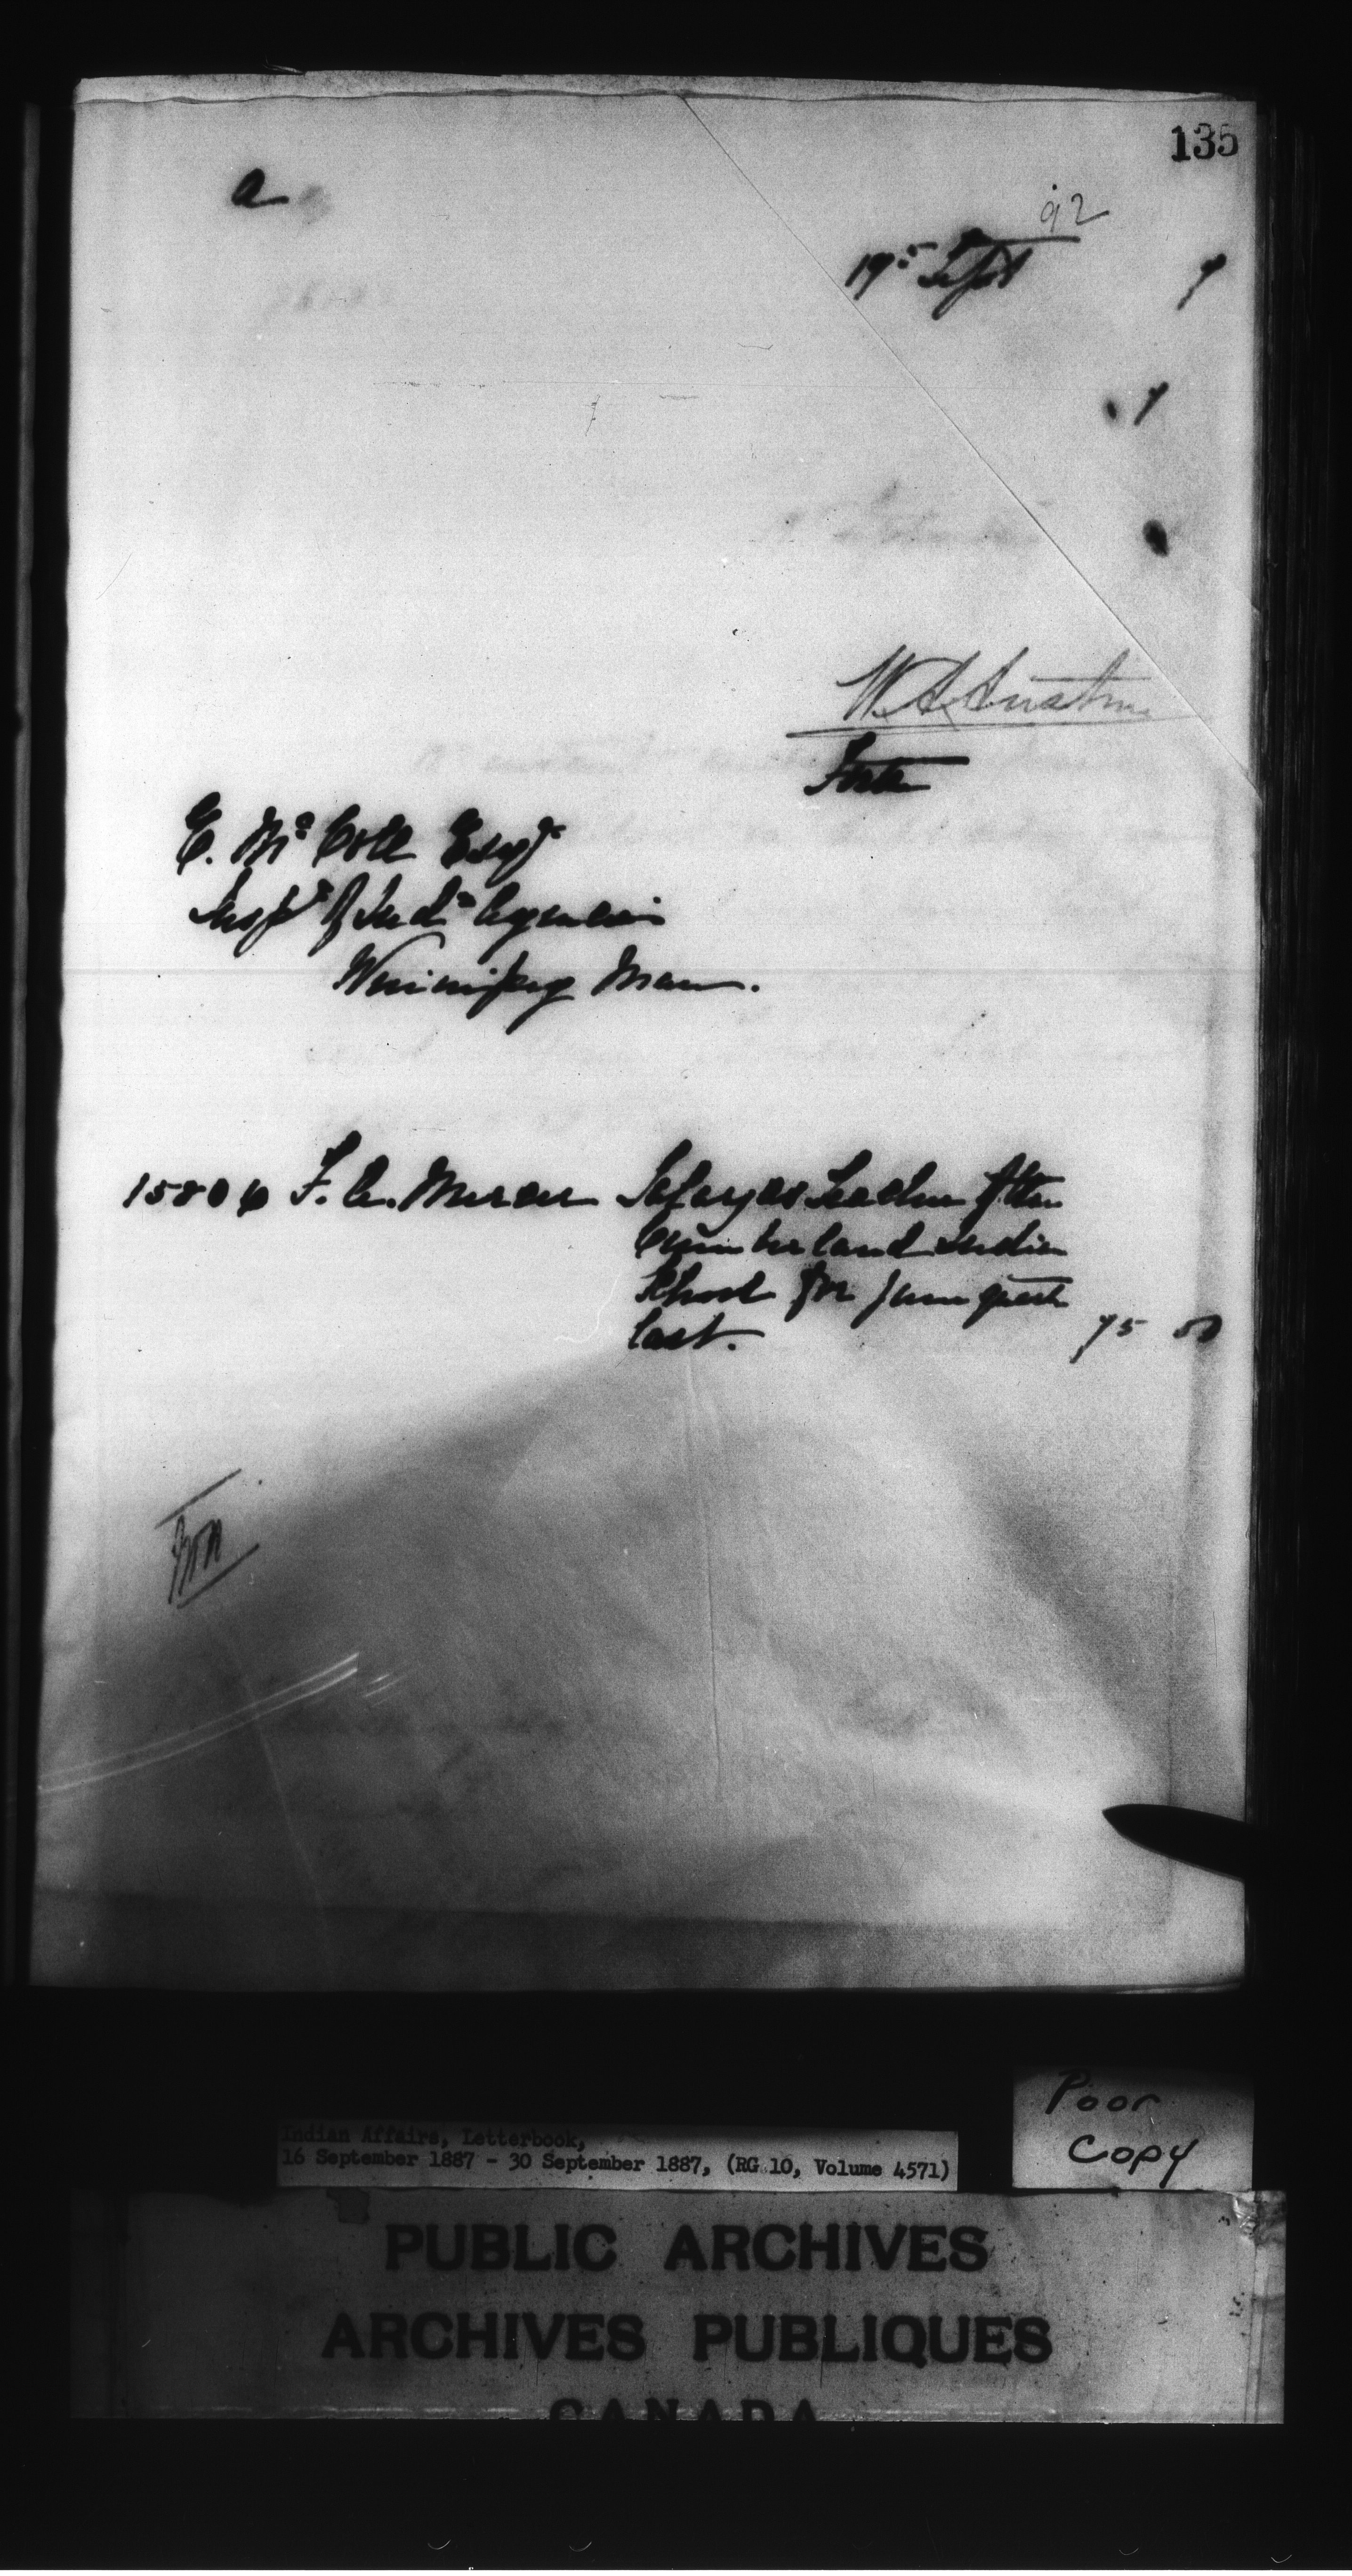 135
a
92
19th Sept 7
1
W. A. Austin
For
E. McColl Esqr
Inspr of Indn Agencies
Winnipeg Man.
15806 F. A. Mercer Salary as Teacher of the
Cumberland Indian
School for June quarter
last. 75 00
Indian Affairs, Letterbook,
16 September 1887 - 30 September 1887, (RG 10, Volume 4571)
Poor
Copy
PUBLIC ARCHIVES
ARCHIVES PUBLIQUES
CANADA